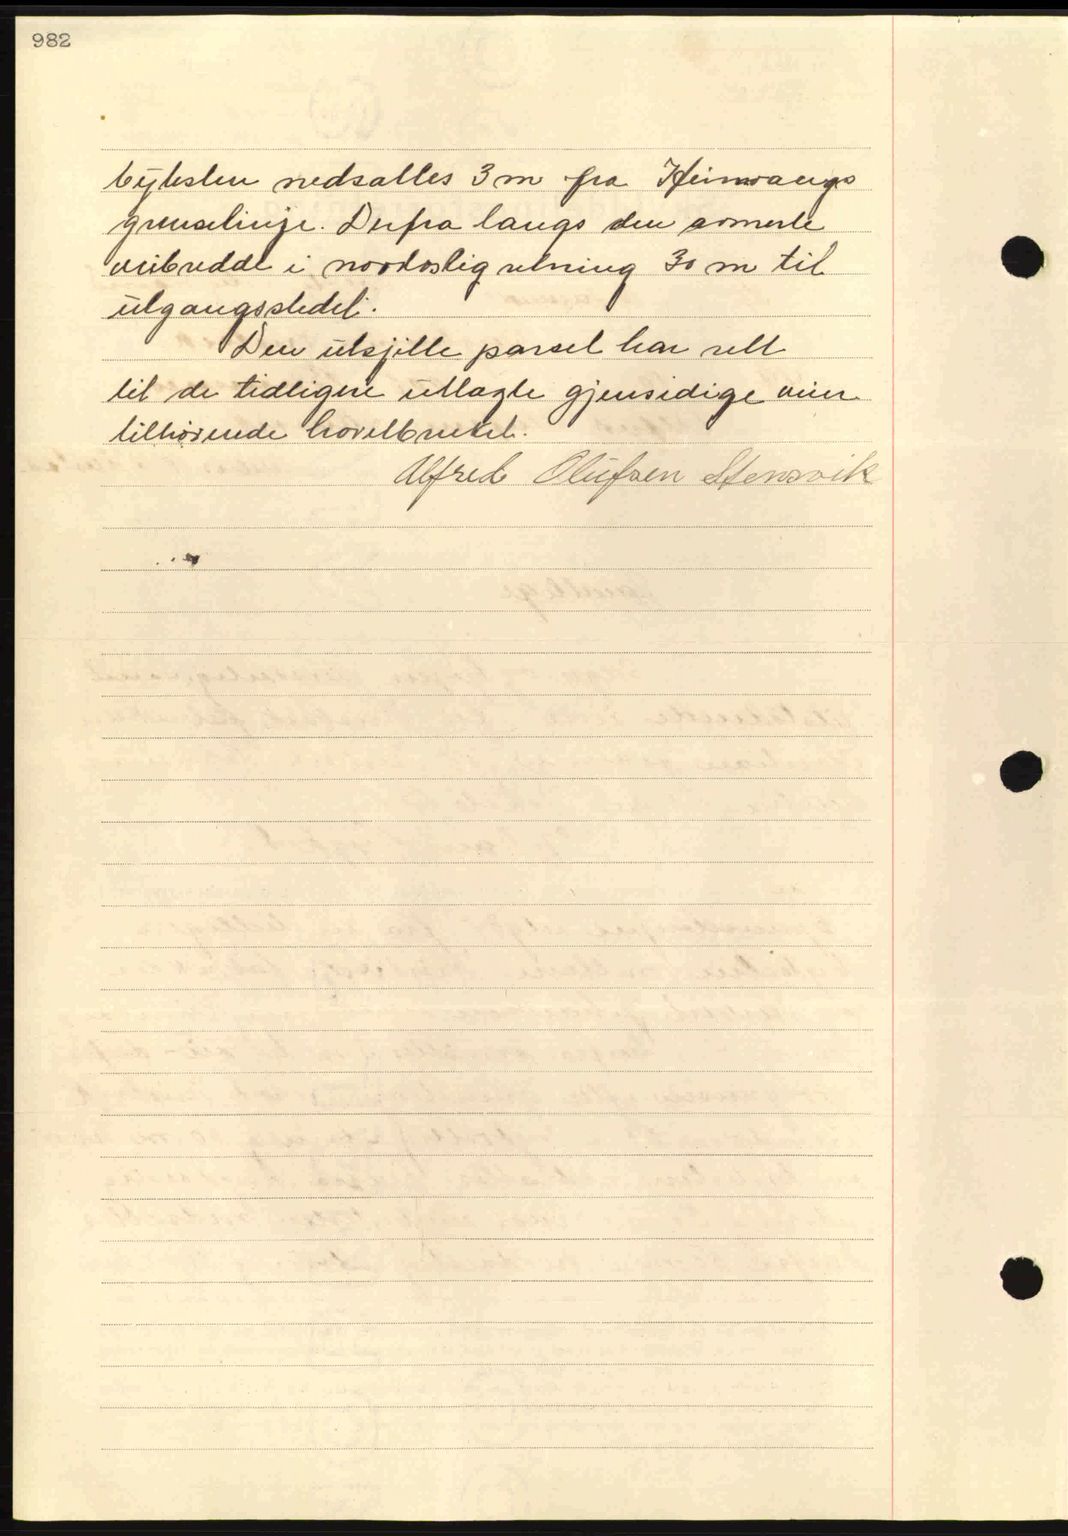 982
bytesten nedsattes 3 m fra Heimvangs
grenselinje. Derfra langs den avmerte
veibredde i nordostlig retning 30 m til
utgangsstedet.
Den utsjilte parsel har rett
til de tidligere utlagte gjensidige veier
tilhørende hovetbruket.
Alfred Olufsen Stensvik